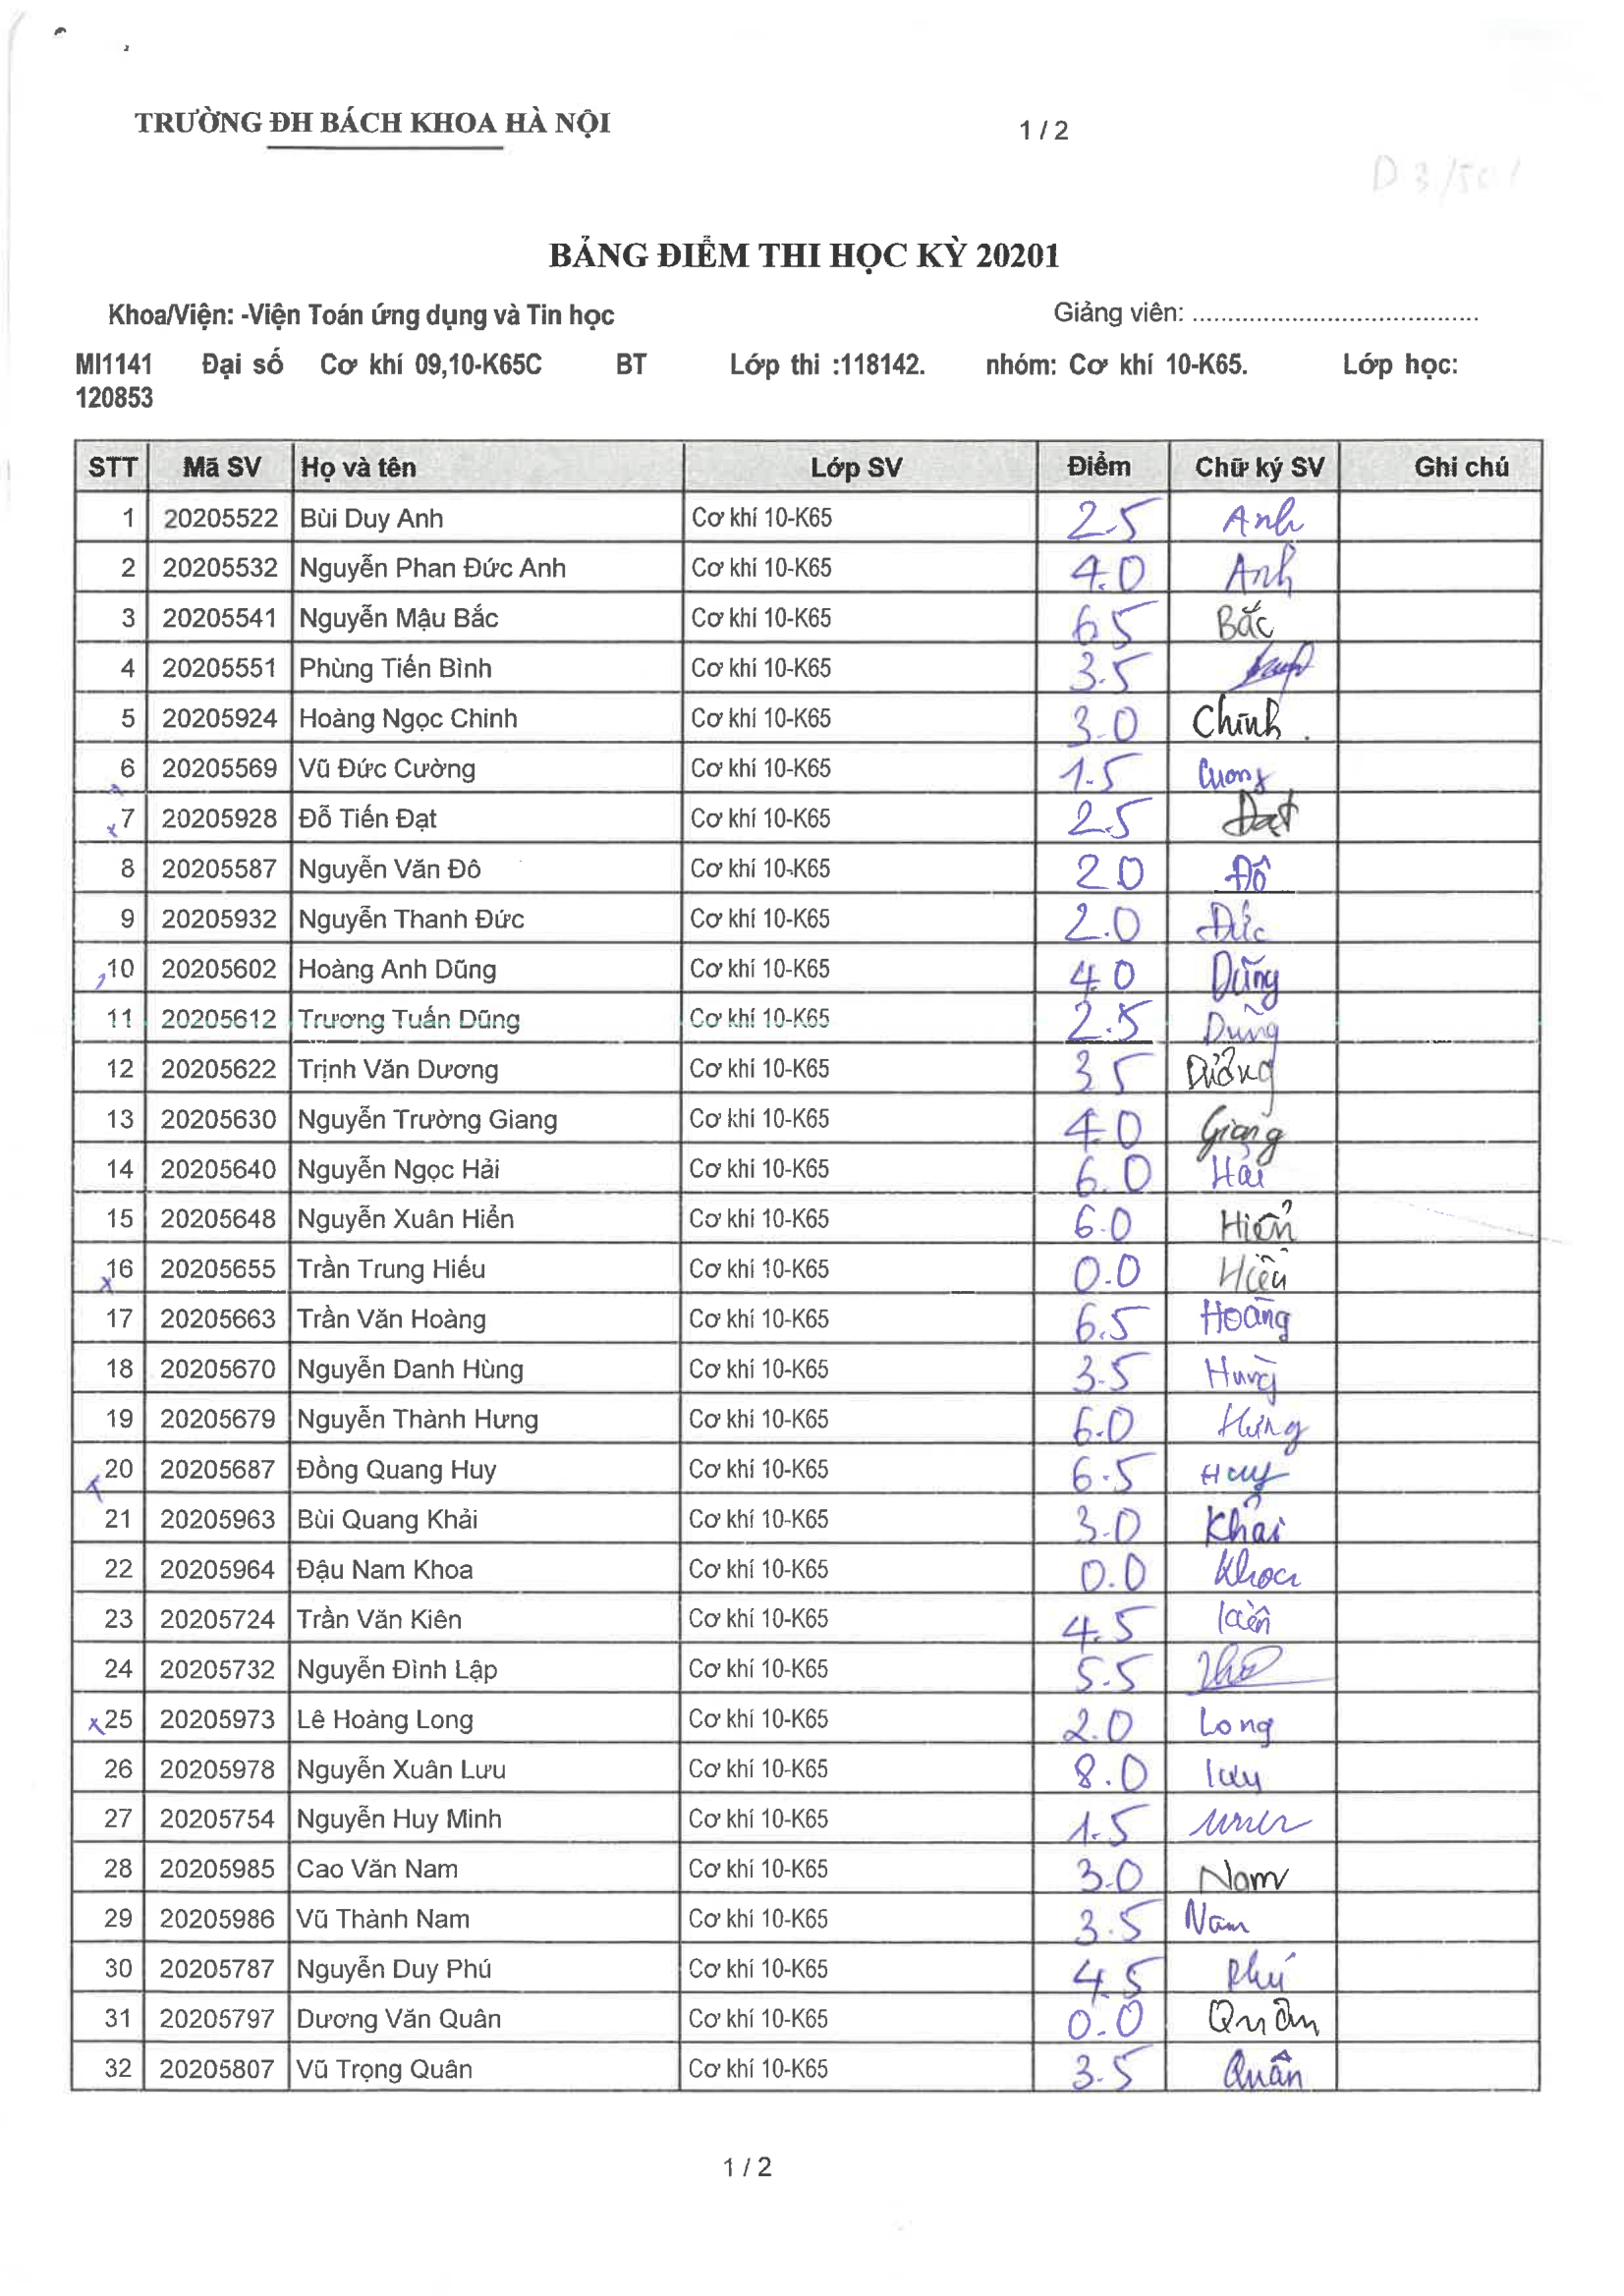 TRƯỜNG ĐH BÁCH KHOA HÀ NỘI 1 / 2
D 3/501
BẢNG ĐIỂM THI HỌC KỲ 20201
Khoa/Viện: -Viện Toán ứng dụng và Tin học Giảng viên: ........................................
MI1141 Đại số Cơ khí 09,10-K65C BT Lớp thi :118142. nhóm: Cơ khí 10-K65. Lớp học:
120853
STT Mã SV Họ và tên Lớp SV Điểm Chữ ký SV Ghi chú
1 20205522 Bùi Duy Anh Cơ khí 10-K65 2.5 Anh
2 20205532 Nguyễn Phan Đức Anh Cơ khí 10-K65 4.0 Anh
3 20205541 Nguyễn Mậu Bắc Cơ khí 10-K65 6 5 Bắc
4 20205551 Phùng Tiến Bình Cơ khí 10-K65 3.5
5 20205924 Hoàng Ngọc Chinh Cơ khí 10-K65 3.0 Chinh
6 20205569 Vũ Đức Cường Cơ khí 10-K65 1.5 Cuong
7 20205928 Đỗ Tiến Đạt Cơ khí 10-K65 2.5 Đạt
8 20205587 Nguyễn Văn Đô Cơ khí 10-K65 2 0 Đô
9 20205932 Nguyễn Thanh Đức Cơ khí 10-K65 2.0 Đức
10 20205602 Hoàng Anh Dũng Cơ khí 10-K65 4.0 Dũng
11 20205612 Trương Tuấn Dũng Cơ khí 10-K65 2.5 Dũng
12 20205622 Trịnh Văn Dương Cơ khí 10-K65 3 5 Dương
13 20205630 Nguyễn Trường Giang Cơ khí 10-K65 4.0 Giang
14 20205640 Nguyễn Ngọc Hải Cơ khí 10-K65 6.0 Hải
15 20205648 Nguyễn Xuân Hiển Cơ khí 10-K65 6.0 Hiển
16 20205655 Trần Trung Hiếu Cơ khí 10-K65 0.0 Hiếu
17 20205663 Trần Văn Hoàng Cơ khí 10-K65 6.5 Hoàng
18 20205670 Nguyễn Danh Hùng Cơ khí 10-K65 3.5 Hùng
19 20205679 Nguyễn Thành Hưng Cơ khí 10-K65 6.0 Hưng
20 20205687 Đồng Quang Huy Cơ khí 10-K65 6.5 Huy
21 20205963 Bùi Quang Khải Cơ khí 10-K65 3.0 Khải
22 20205964 Đậu Nam Khoa Cơ khí 10-K65 0.0 Khoa
23 20205724 Trần Văn Kiên Cơ khí 10-K65 4.5 kiên
24 20205732 Nguyễn Đình Lập Cơ khí 10-K65 5.5
25 20205973 Lê Hoàng Long Cơ khí 10-K65 2.0 Long
26 20205978 Nguyễn Xuân Lưu Cơ khí 10-K65 8.0 lưu
27 20205754 Nguyễn Huy Minh Cơ khí 10-K65 1.5
28 20205985 Cao Văn Nam Cơ khí 10-K65 3.0 Nam
29 20205986 Vũ Thành Nam Cơ khí 10-K65 3.5 Nam
30 20205787 Nguyễn Duy Phú Cơ khí 10-K65 4.5 Phú
31 20205797 Dương Văn Quân Cơ khí 10-K65 0.0 Quân
32 20205807 Vũ Trọng Quân Cơ khí 10-K65 3.5 Quân
1 / 2